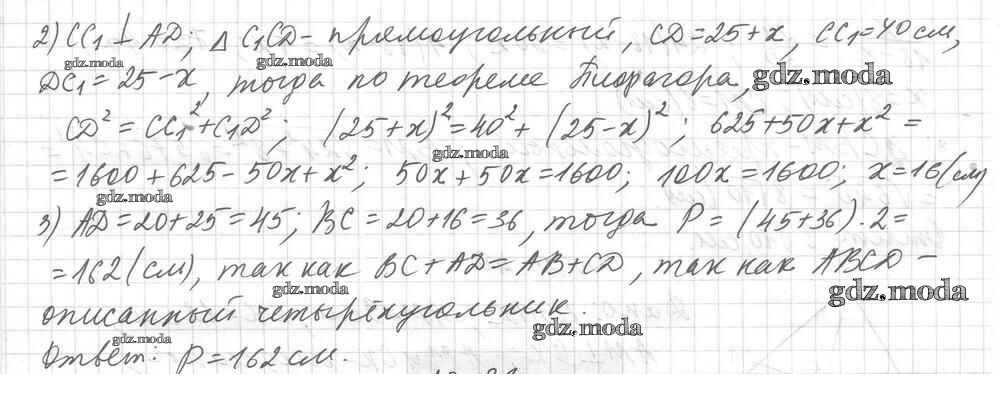 2) CC₁ ⊥ AD; Δ C₁CD - прямоугольный, CD = 25 + x, CC₁ = 40 см,
DC₁ = 25 - x, тогда по теореме Пифагора,
CD² = CC₁² + C₁D²; (25+x)² = 40² + (25-x)²; 625 + 50x + x² =
= 1600 + 625 - 50x + x²; 50x + 50x = 1600; 100x = 1600; x = 16 (см)
3) AD = 20 + 25 = 45; BC = 20 + 16 = 36, тогда P = (45 + 36) · 2 =
= 162 (см), так как BC + AD = AB + CD, так как ABCD -
описанный четырёхугольник.
Ответ: P = 162 см.
gdz.moda
gdz.moda
gdz.moda
gdz.moda
gdz.moda
gdz.moda
gdz.moda
gdz.moda
gdz.moda